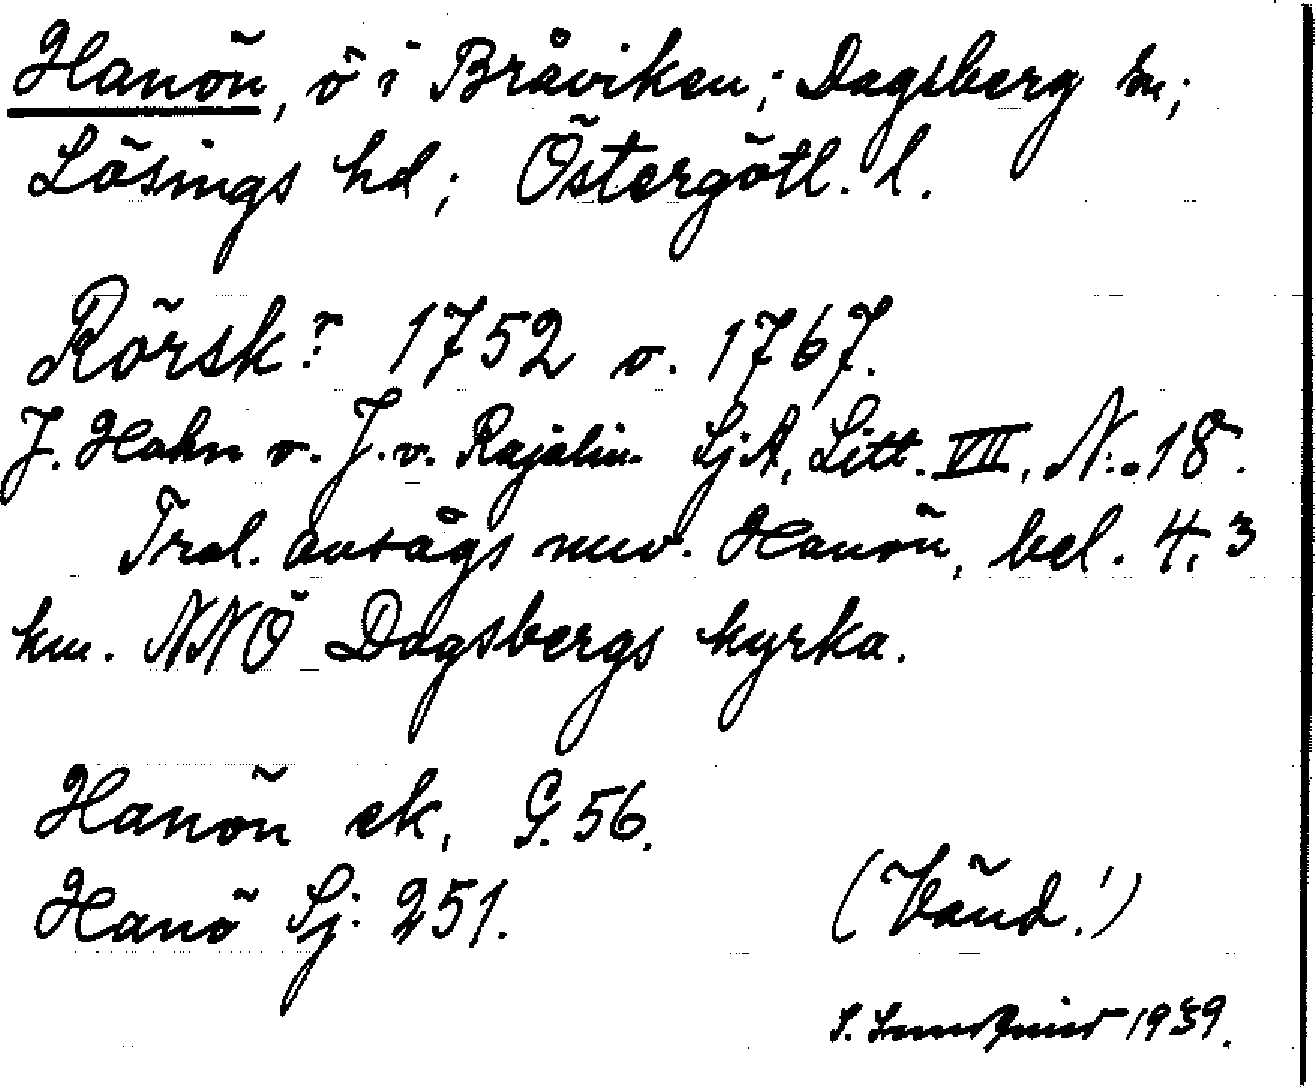 Hanön, ö i Bråviken; Dagsberg sn;
Lösings hd; Östergötl. l.
Rörsk? 1752 o. 1767.
J. Hahn o. J. v. Rajalin SjA, Litt. VII, N:o 18.
Trol. avsågs nuv. Hanön, bel. 4,3
km. NNÖ Dagsbergs kyrka.
Hanön ek. G. 56.
Hanö Sj: 251.
(Vänd!)
S. 1939.